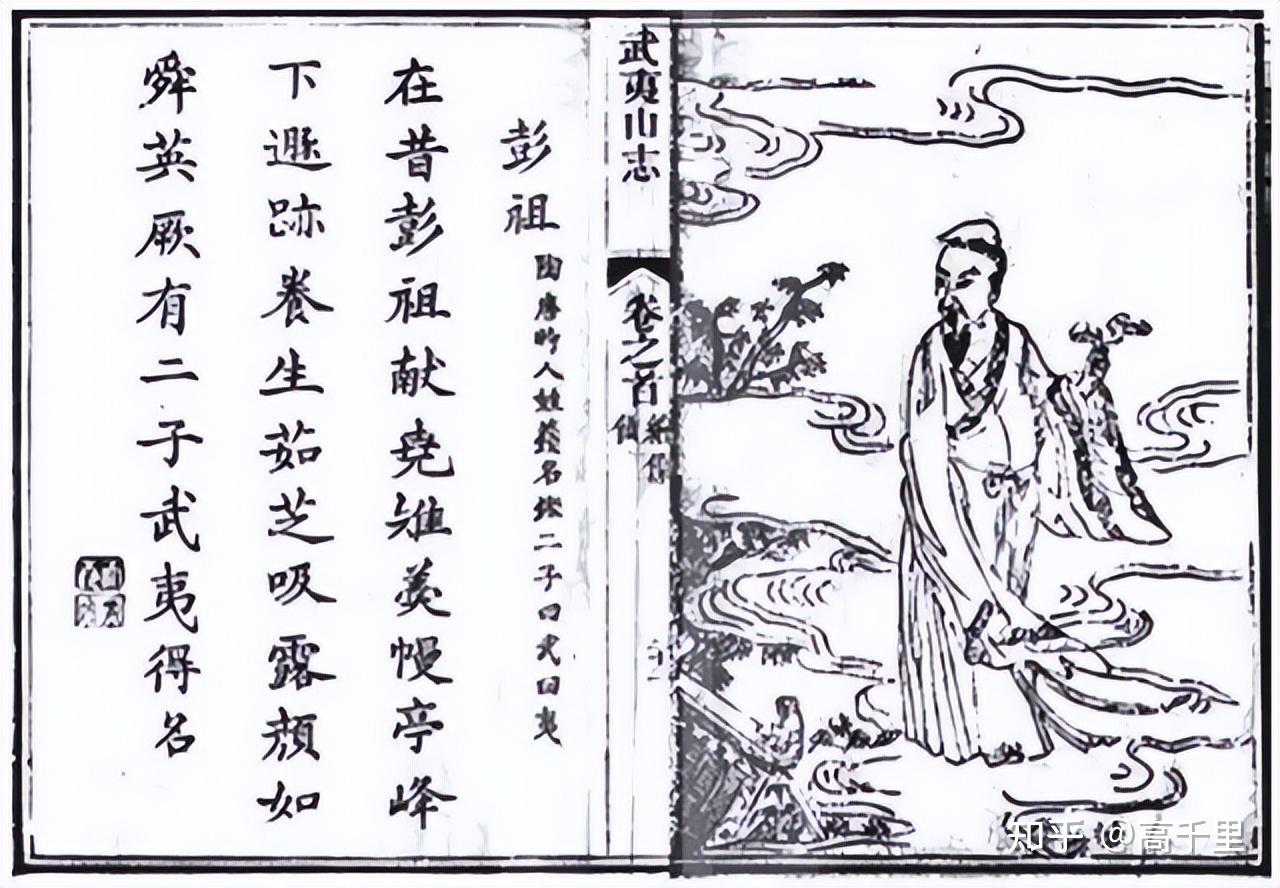 武夷山志
卷之首
彭祖
陶唐时人姓籛名鏗二子曰武曰夷
在昔彭祖献尧雉羮幔亭峰
下遯跡養生茹芝吸露顏如
舜英厥有二子武夷得名
知乎 @高千里